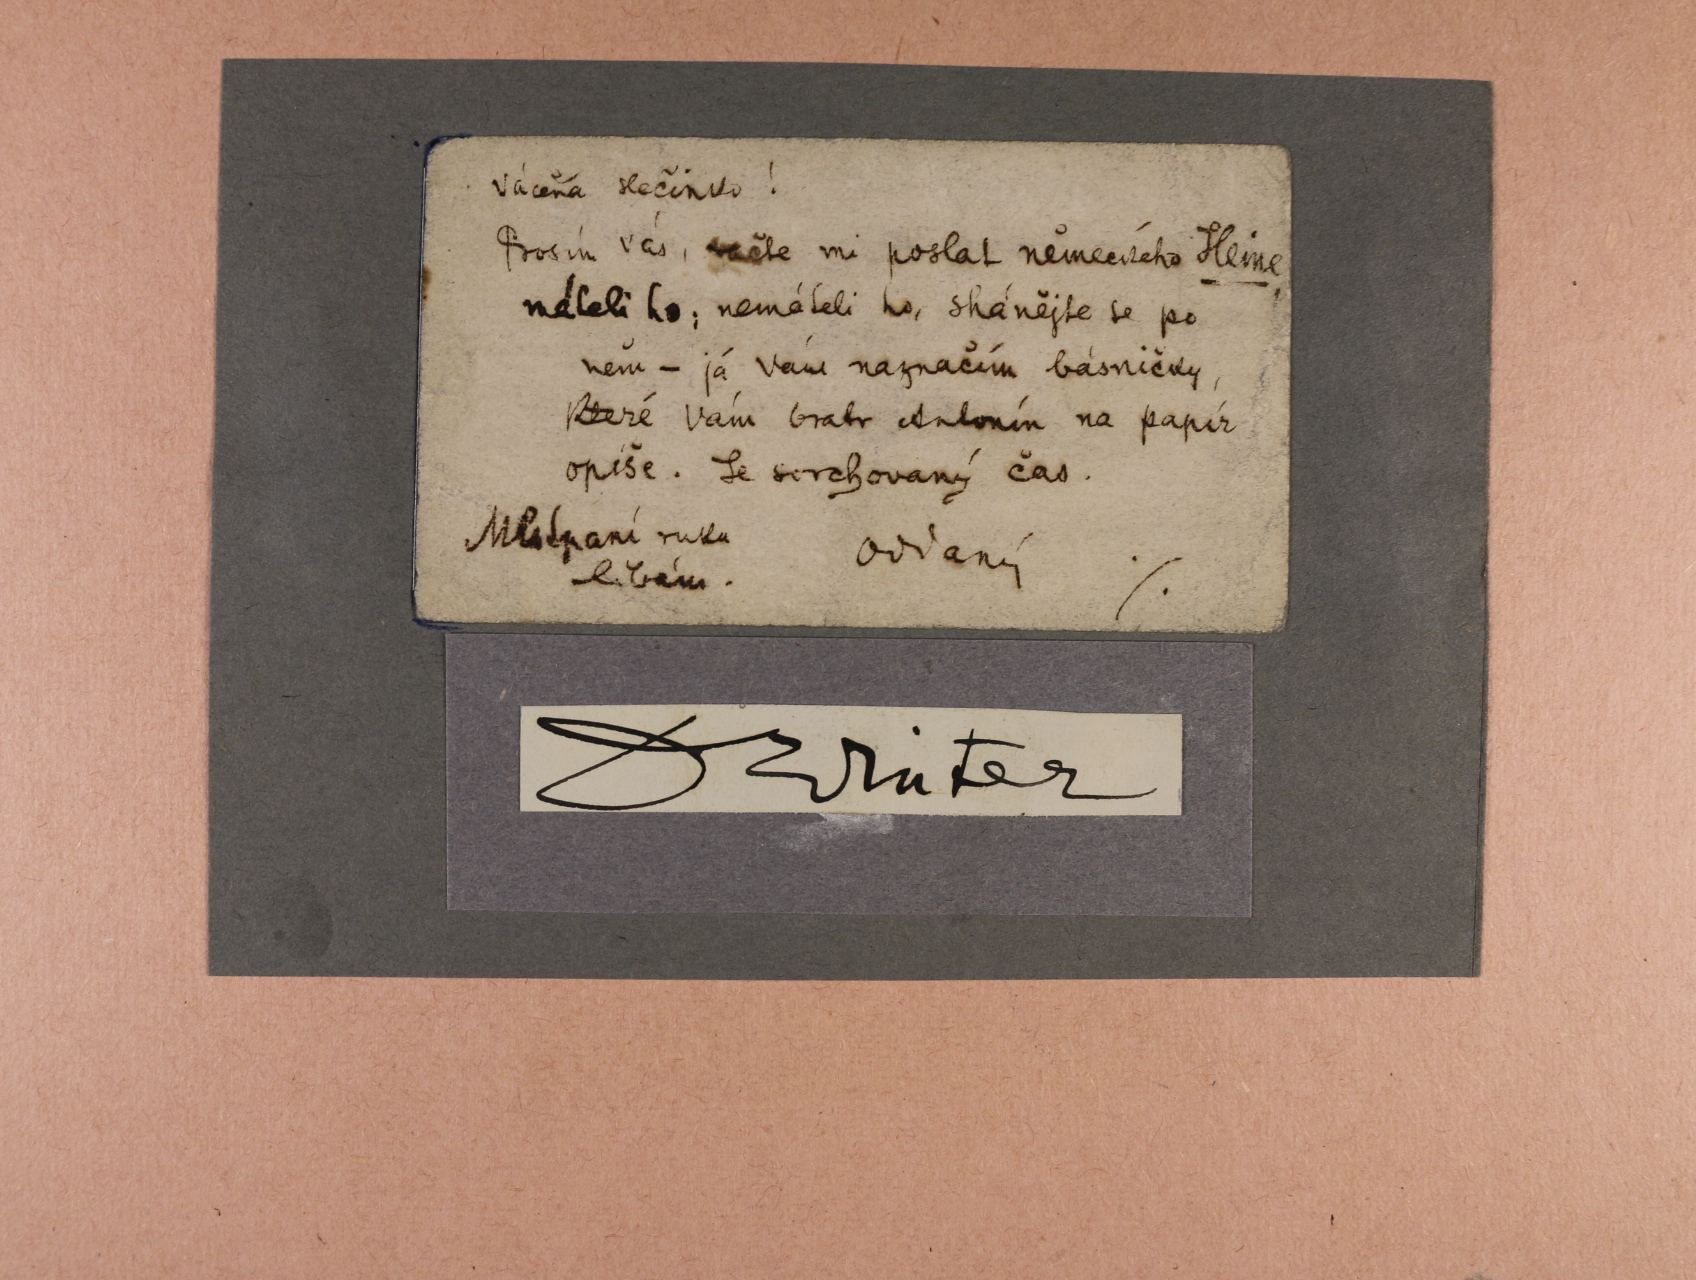 Vácená slečinko!
Prosím vás, račte mi poslat německého Heine,
máteli ho; nemáteli ho, shánějte se po
něm – já vám naznačím básničky,
které vám bratr Antonín na papír
opíše. Je svrchovaný čas.
Milstpaní ruku
líbám.
Oddaný
./.
Winter